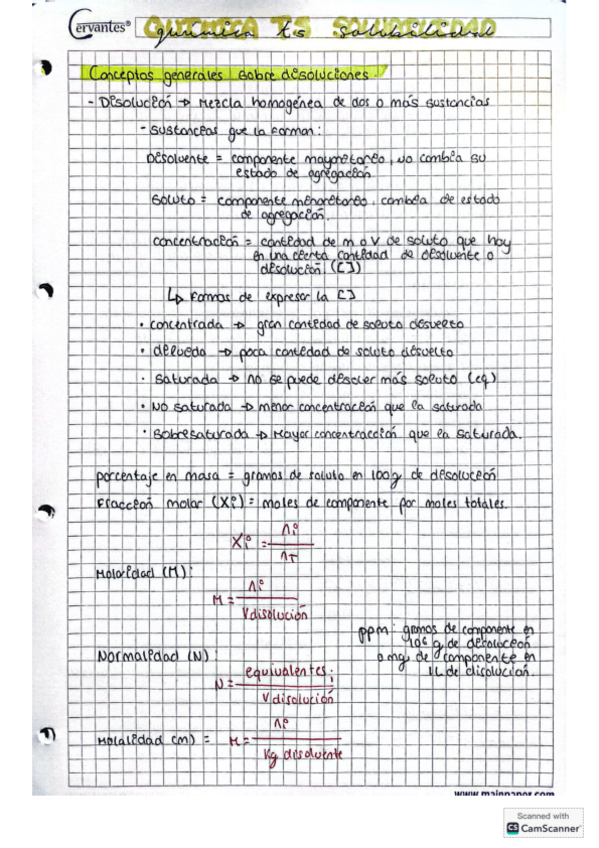 Cervantes®
QUÍMICA T.5 SOLUBILIDAD
química t.5 solubilidad
Conceptos generales sobre disoluciones.
- Disolución → Mezcla homogénea de dos o más sustancias
- Sustancias que la forman:
Disolvente = componente mayoritario, no cambia su
estado de agregación
Soluto = componente minoritario, cambia de estado
de agregación.
concentración = cantidad de m o V de soluto que hay
en una cierta cantidad de disolvente o
disolución. ([])
↳ Formas de expresar la []
• concentrada → gran cantidad de soluto disuelto
• diluida → poca cantidad de soluto disuelto
• saturada → no se puede disolver más soluto (eq)
• No saturada → menor concentración que la saturada
• Sobresaturada → Mayor concentracción que la saturada.
porcentaje en masa = gramos de soluto en 100g de disolución
Fracción molar (Xi) = moles de componente por moles totales.
Xi = ni / nT
Molaridad (M):
M = ni / V disolución
ppm: gramos de componente en
10⁶ g de disolución
o mg de componente en
1L de disolución.
Normalidad (N)
N = equivalentes i / V disolución
Molalidad (m) = M = ni / Kg disolvente
www.mainpaper.com
Scanned with
CS CamScanner